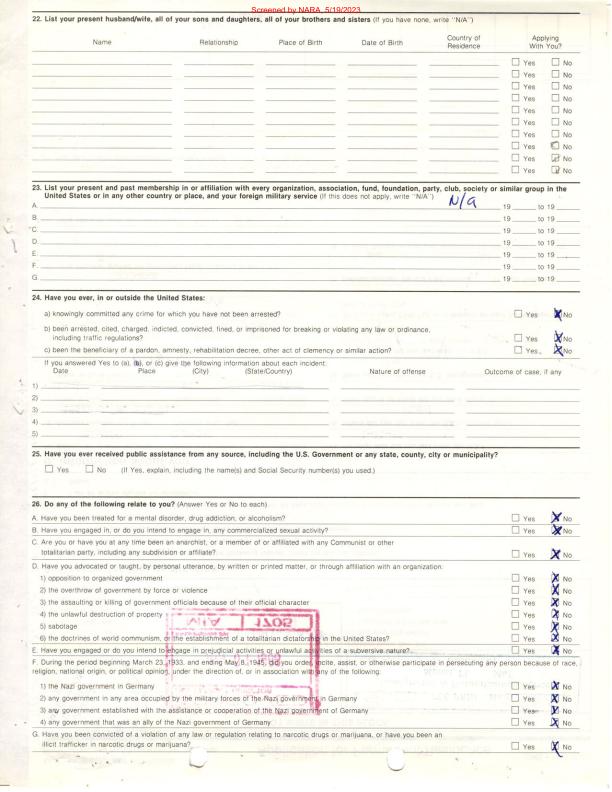 Screened by NARA, 5/19/2023
22. List your present husband/wife, all of your sons and daughters, all of your brothers and sisters (If you have none, write "N/A")
Name Relationship Place of Birth Date of Birth Country of Residence Applying With You?
☐ Yes ☐ No
☐ Yes ☐ No
☐ Yes ☐ No
☐ Yes ☐ No
☐ Yes ☐ No
☐ Yes ☐ No
☐ Yes ☐ No
☐ Yes ☐ No
☐ Yes ☐ No
☐ Yes ☐ No
23. List your present and past membership in or affiliation with every organization, association, fund, foundation, party, club, society or similar group in the
United States or in any other country or place, and your foreign military service (If this does not apply, write "N/A") N/A
A. 19 to 19
B. 19 to 19
C. 19 to 19
D. 19 to 19
E. 19 to 19
F. 19 to 19
G. 19 to 19
24. Have you ever, in or outside the United States:
a) knowingly committed any crime for which you have not been arrested? ☐ Yes ☒ No
b) been arrested, cited, charged, indicted, convicted, fined, or imprisoned for breaking or violating any law or ordinance,
including traffic regulations? ☐ Yes ☒ No
c) been the beneficiary of a pardon, amnesty, rehabilitation decree, other act of clemency or similar action? ☐ Yes ☒ No
If you answered Yes to (a), (b), or (c) give the following information about each incident
Date Place (City) (State/Country) Nature of offense Outcome of case, if any
1)
2)
3)
4)
5)
25. Have you ever received public assistance from any source, including the U.S. Government or any state, county, city or municipality?
☐ Yes ☐ No (If Yes, explain, including the name(s) and Social Security number(s) you used.)
26. Do any of the following relate to you? (Answer Yes or No to each)
A. Have you been treated for a mental disorder, drug addiction, or alcoholism? ☐ Yes ☒ No
B. Have you engaged in, or do you intend to engage in, any commercialized sexual activity? ☐ Yes ☒ No
C. Are you or have you at any time been an anarchist, or a member of or affiliated with any Communist or other
totalitarian party, including any subdivision or affiliate? ☐ Yes ☒ No
D. Have you advocated or taught, by personal utterance, by written or printed matter, or through affiliation with an organization:
1) opposition to organized government ☐ Yes ☒ No
2) the overthrow of government by force or violence ☐ Yes ☒ No
3) the assaulting or killing of government officials because of their official character ☐ Yes ☒ No
4) the unlawful destruction of property ☐ Yes ☒ No
5) sabotage ☐ Yes ☒ No
6) the doctrines of world communism, or the establishment of a totalitarian dictatorship in the United States? ☐ Yes ☒ No
E. Have you engaged or do you intend to engage in prejudicial activities or unlawful activities of a subversive nature? ☐ Yes ☒ No
F. During the period beginning March 23, 1933, and ending May 8, 1945, did you order, incite, assist, or otherwise participate in persecuting any person because of race,
religion, national origin, or political opinion, under the direction of, or in association with any of the following:
1) the Nazi government in Germany ☐ Yes ☒ No
2) any government in any area occupied by the military forces of the Nazi government in Germany ☐ Yes ☒ No
3) any government established with the assistance or cooperation of the Nazi government of Germany ☐ Yes ☒ No
4) any government that was an ally of the Nazi government of Germany ☐ Yes ☒ No
G. Have you been convicted of a violation of any law or regulation relating to narcotic drugs or marijuana, or have you been an
illicit trafficker in narcotic drugs or marijuana? ☐ Yes ☒ No